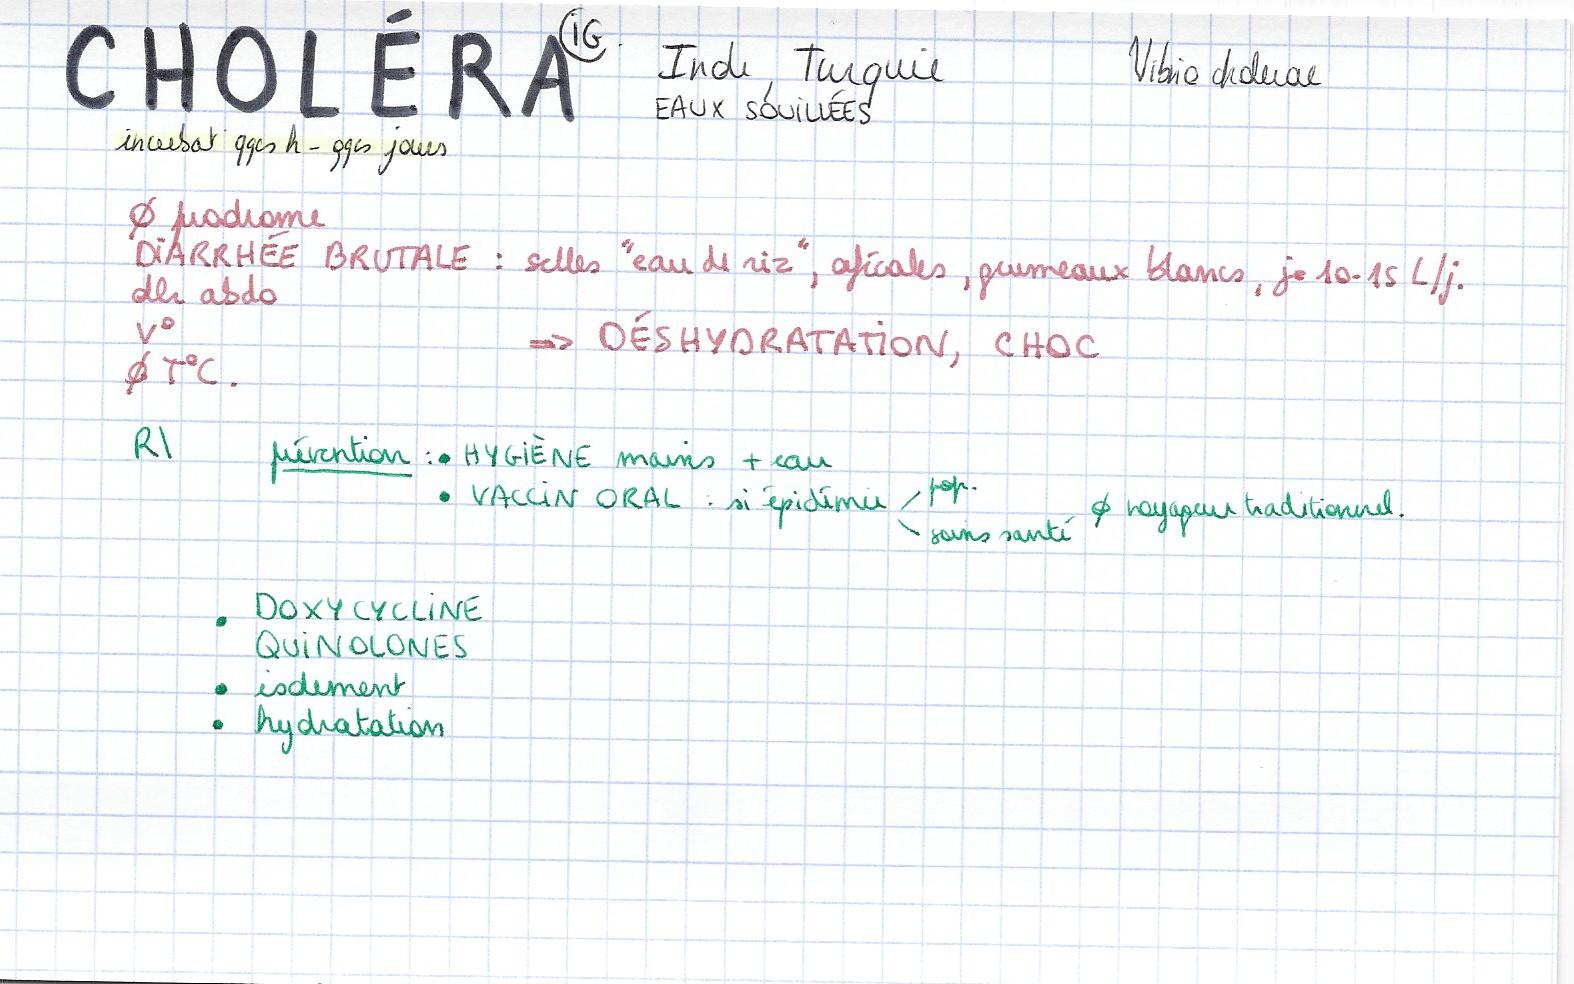 CHOLÉRA iG. Inde, Turquie Vibrio cholerae
EAUX SOUILLÉES
incubat° qqes h - qqes jours
Ø prodrome
DiARRHÉE BRUTALE : selles "eau de riz", afécales, grumeaux blancs, je 10-15 L/j.
dlr abdo
V°
=> DÉSHYDRATATiON, CHOC
Ø T°C.
R\ prévention : • HYGiÈNE mains + eau
• VACCiN ORAL : si épidémie pop.
soins santé Ø voyageur traditionnel.
• DOXYCYCLiNE
QUiNOLONES
• isolement
• hydratation